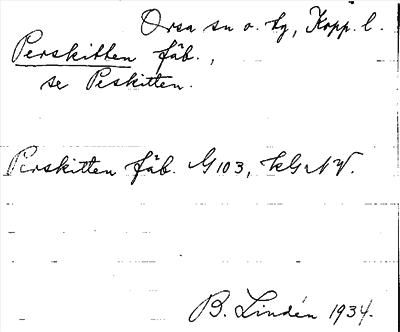 Orsa sn o. tg, Kopp. l.
Perskitten fäb.,
se Peskitten.
Perskitten fäb. G103, kGrNV.
B. Lindén 1934.